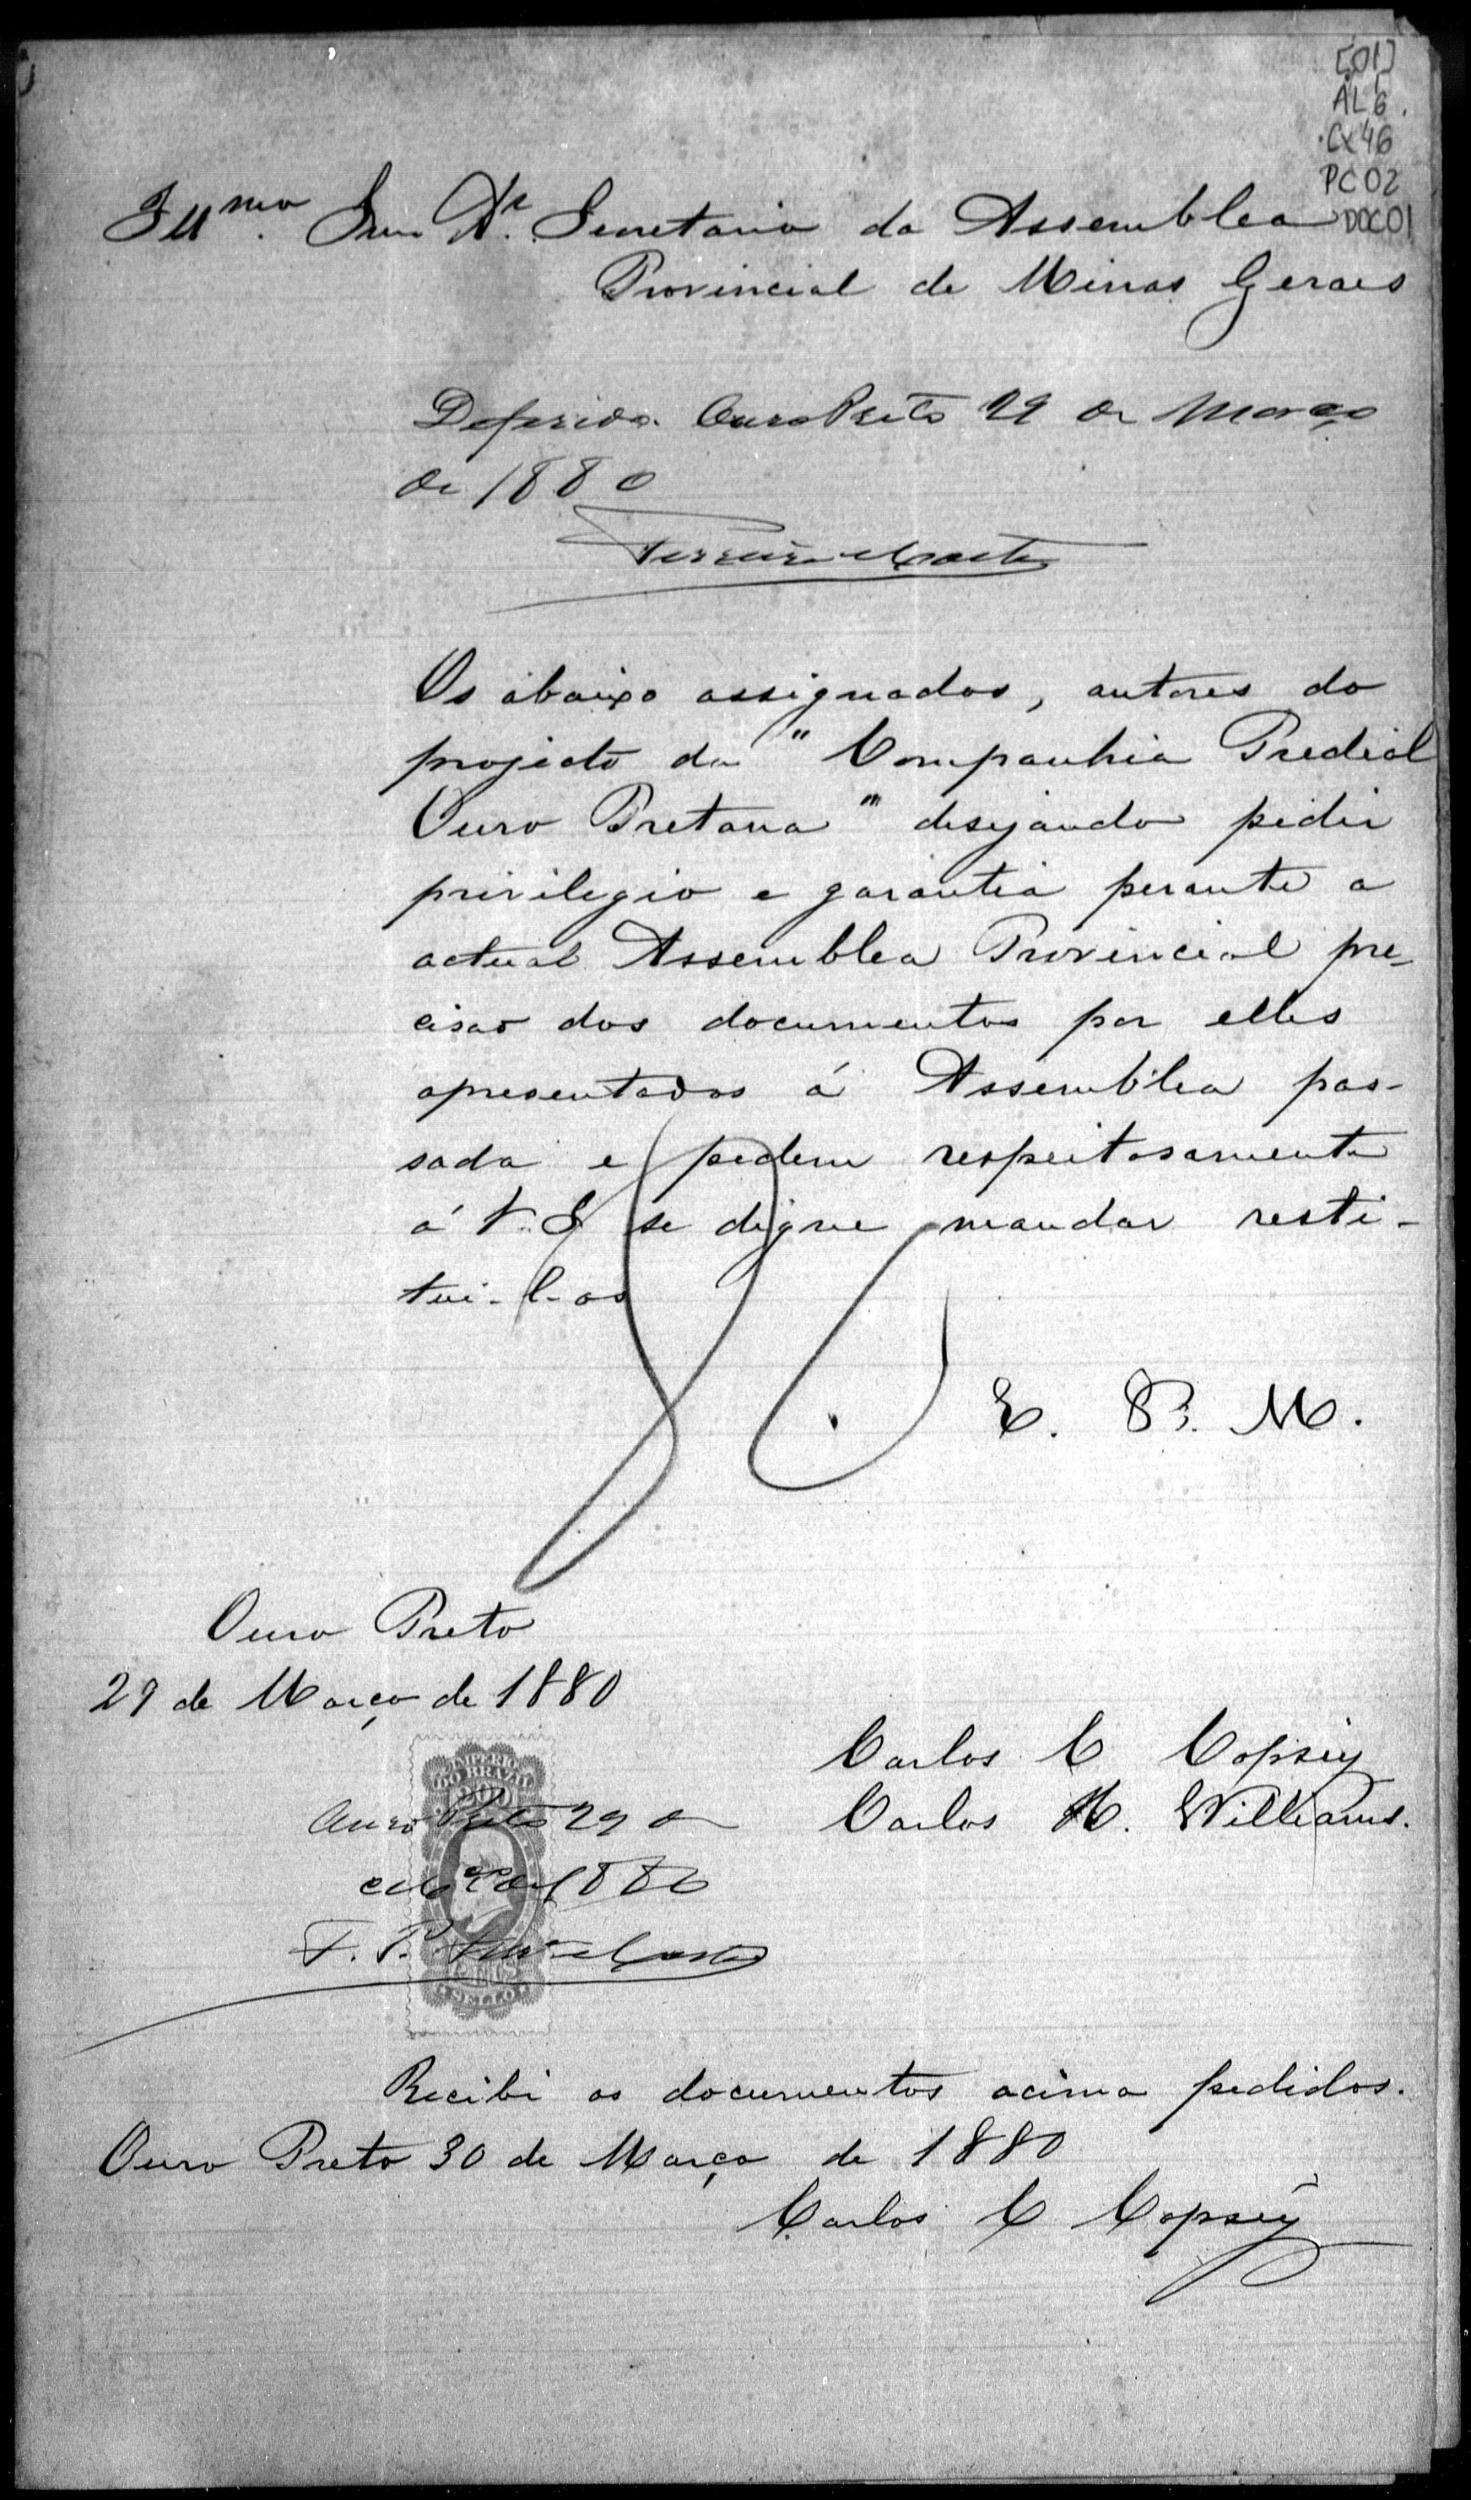 [01]
AL 6.
CX 46
PC 02
DOC 01
Illmo. Snr. Dr. Secretario da Assemblea
Provincial de Minas Geraes
Deferido. Ouro Preto 29 de Março
de 1880
Ferreira e Costa
Os abaixo assignados, autores do
projecto da "Companhia Predial
Ouro Pretana" desejando pedir
privilegio e garantia perante a
actual Assemblea Provincial pre-
cisao dos documentos por elles
apresentados á Assemblea pas-
sada e pedem respeitosamente
á V. S. se digne mandar resti-
tui-l-os
E. R. M.
Ouro Preto
29 de Março de 1880
Carlos C Copsey
Carlos H. Williams.
IMPERIO
DO BRAZIL
200
Ouro Preto 29 de
Março de 1880
F. P. Ferra e Costa
REIS
SELLO
Recibi os documentos acima pedidos.
Ouro Preto 30 de Março de 1880
Carlos C Copsey